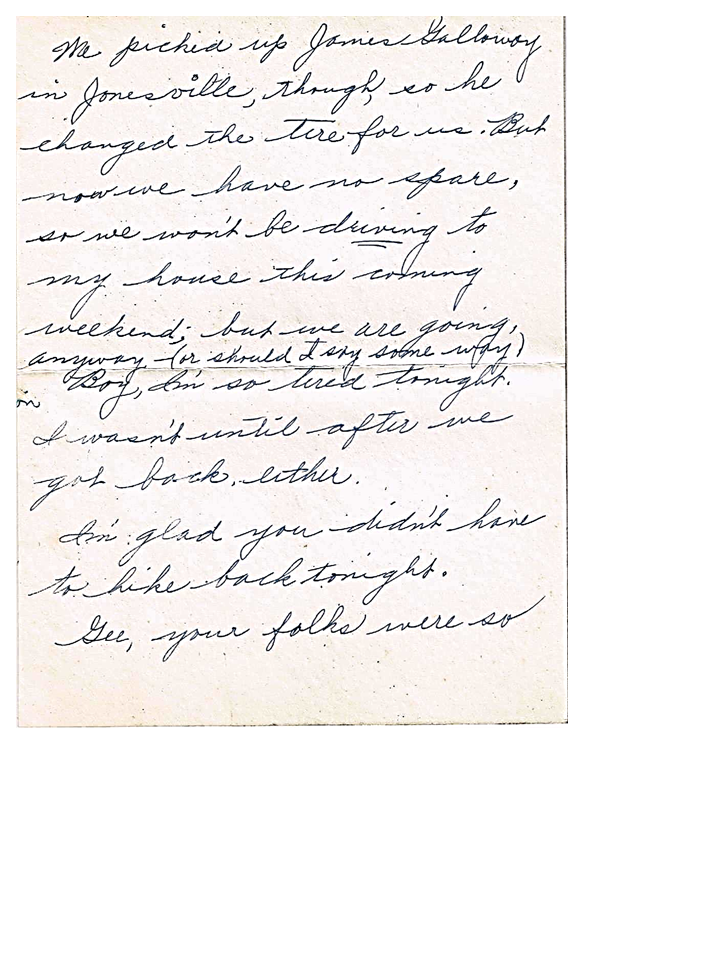 We picked up James Galloway
in Jonesville, though, so he
changed the tire for us. But
now we have no spare,
so we won't be driving to
my house this coming
weekend; but we are going,
anyway - (or should I say some way)
Boy, I'm so tired tonight.
I wasn't until after we
got back, either.
I'm glad you didn't have
to hike back tonight.
Gee, your folks were so